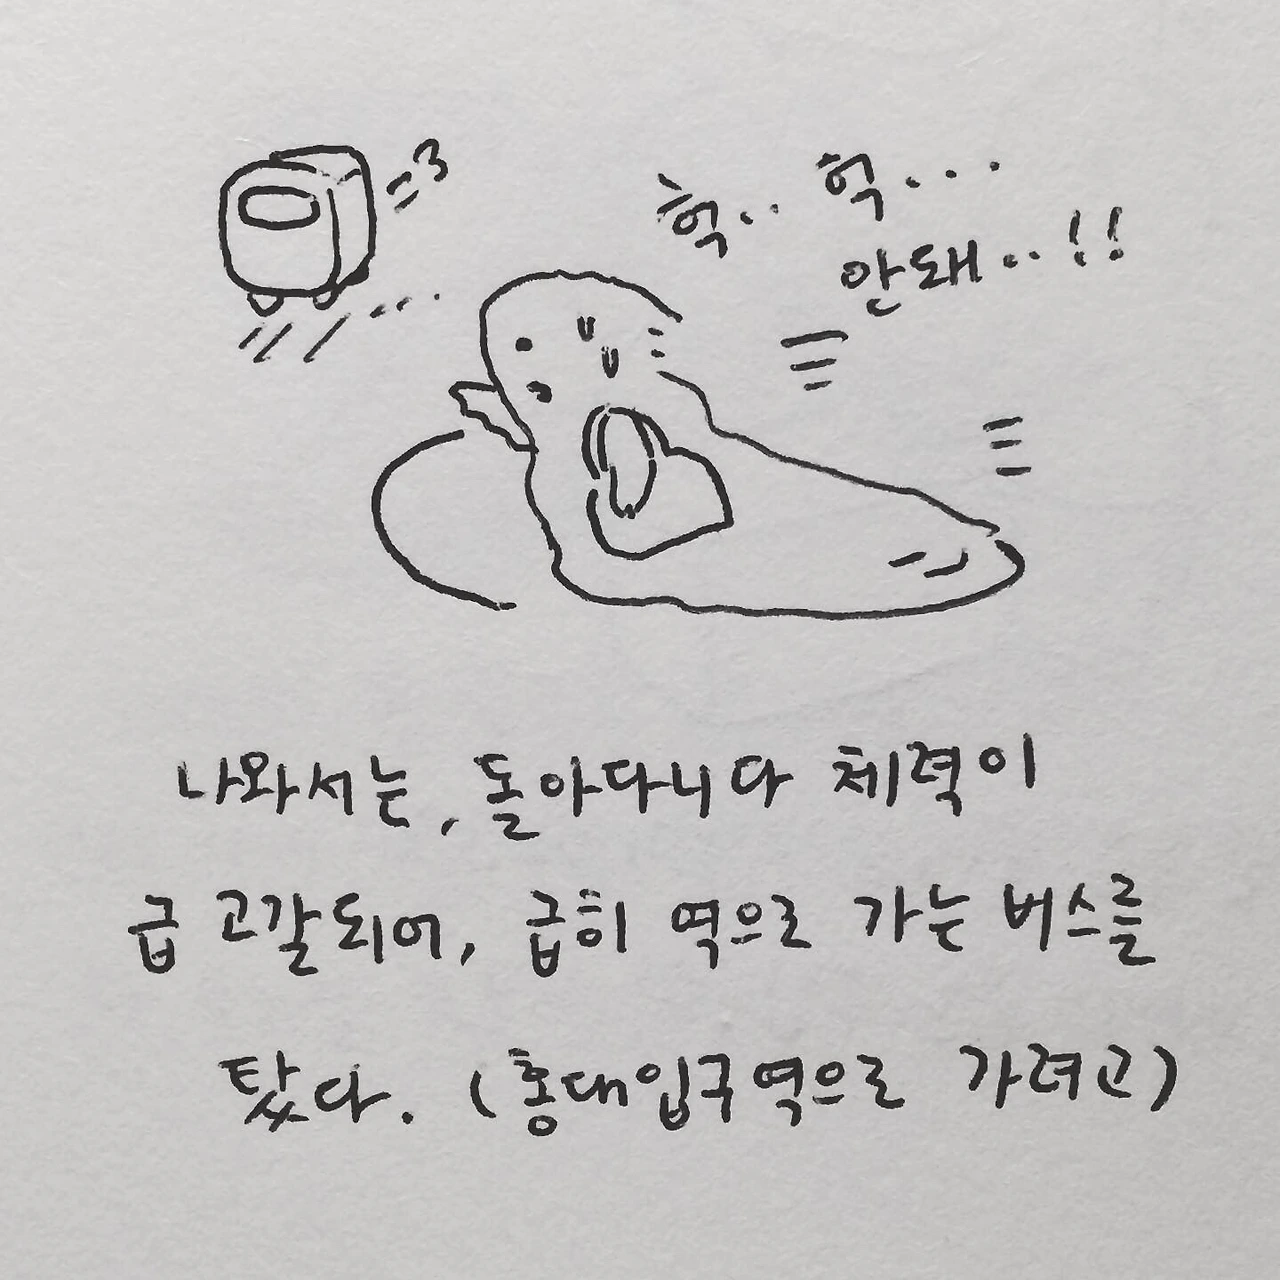 헉.. 헉...
안돼..!!
나와서는, 돌아다니다 체력이
급 고갈되어, 급히 역으로 가는 버스를
탔다. (홍대입구역으로 가려고)